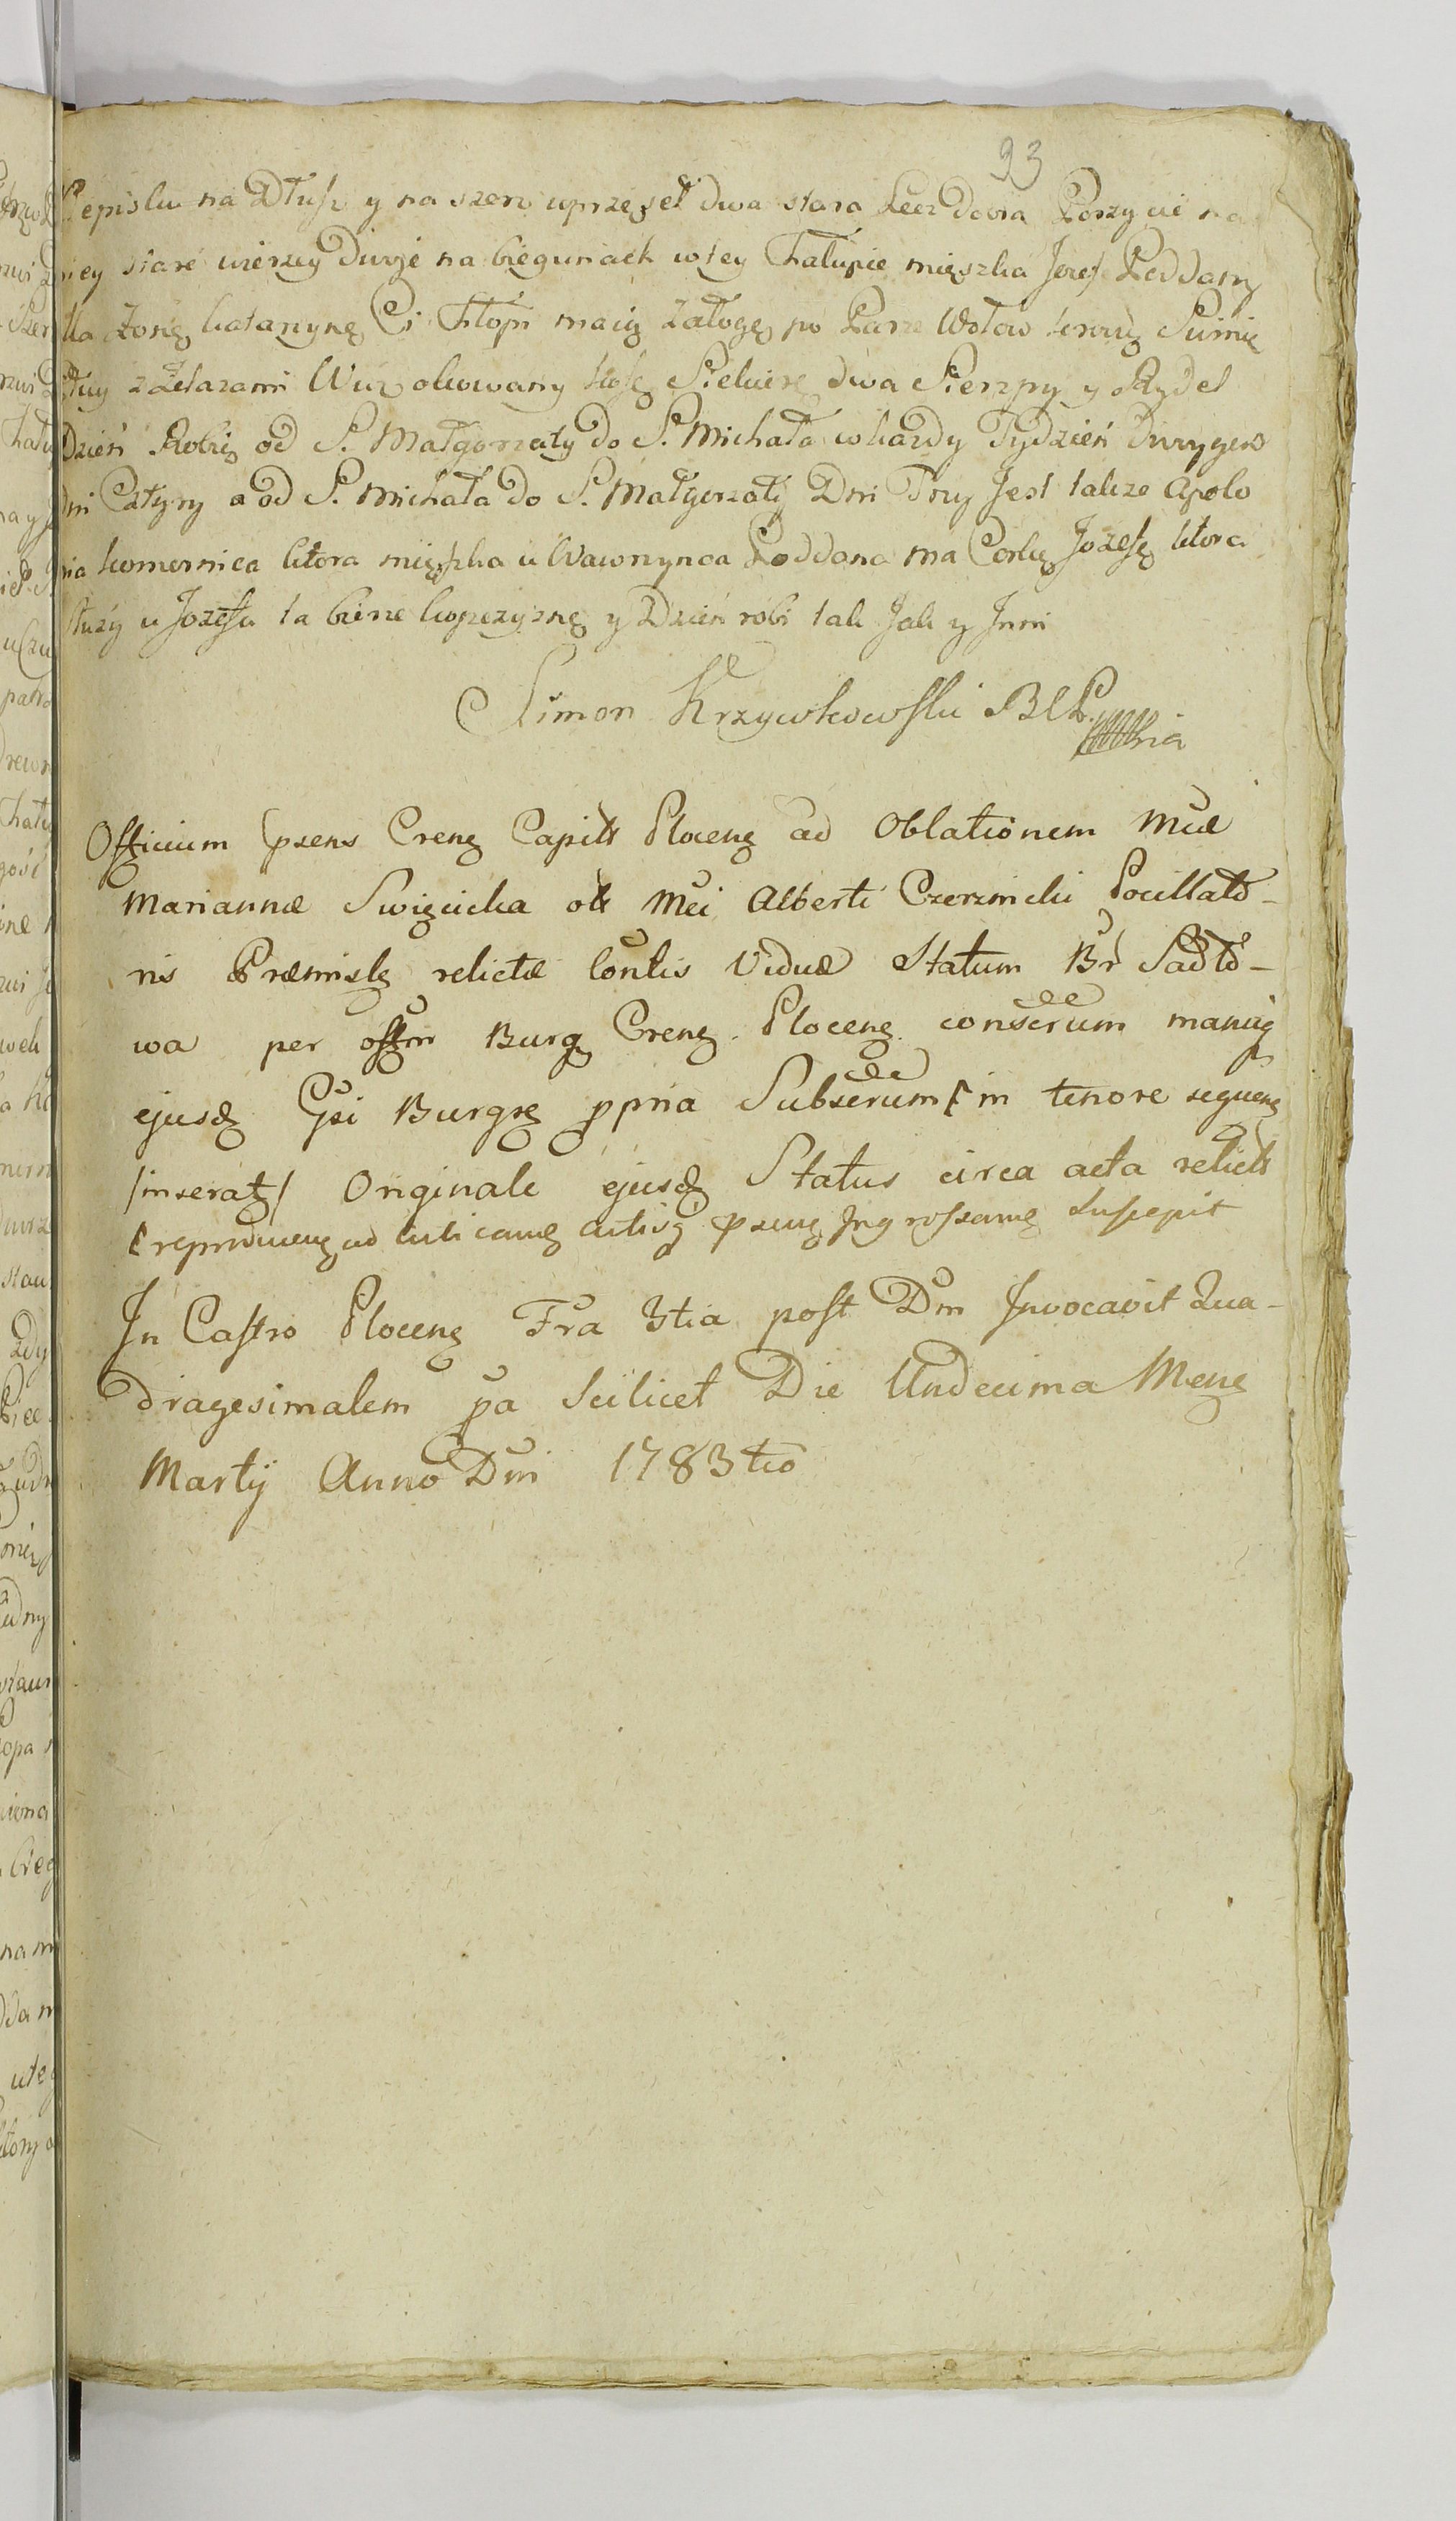 93
Lepisku na Dłusz y na szerz uprzęseł dwa stara Lecz dobra Poszycie na
niey stare wierzey dwoje na biegunach w tey Chałupie mięszka Jozef Poddany
Ma Zonę Katarzynę Ci Chłopi maią załogę po Parze Wołow krowę
z Zelazami Woz okowany kosę Siekierę dwa Sierzpy y Rydel
Dzień Robię od S. Małgorzaty do S. Michała w kazdy Tydzień
dni Cztyry a od S. Michała do S. Małgorzaty Dni Trzy Jest takze Apolo
nia komornica ktora mięszka u Wawrzynca Poddana ma Corkę Jozefę ktora
słuzy u Jozefa ta bierze kopczyznę y Dzień robi tak Jak y Inni
Simon Krzywkowski B C P
Officium psens Crens Capitt Plocens ad Oblationem Mcæ
Mariannæ Swięcicka ol Mci Alberti Czerznicki Pocillato-
ris Præmisls relictæ Contis Viduæ Statum Br Sadło-
wa per offm Burg Crens Plocens conscrum manuq
ejusd Gsi Burgrs ppria Subscrum in tenore sequens
/inserats/ Originale ejusd Status circa acta relicts
In Castro Plocens Fra 3tia post Dm Invocavit Qua-
dragesimalem pa scilicet Die Undecima Mens
Martij Anno Dni 1783tio